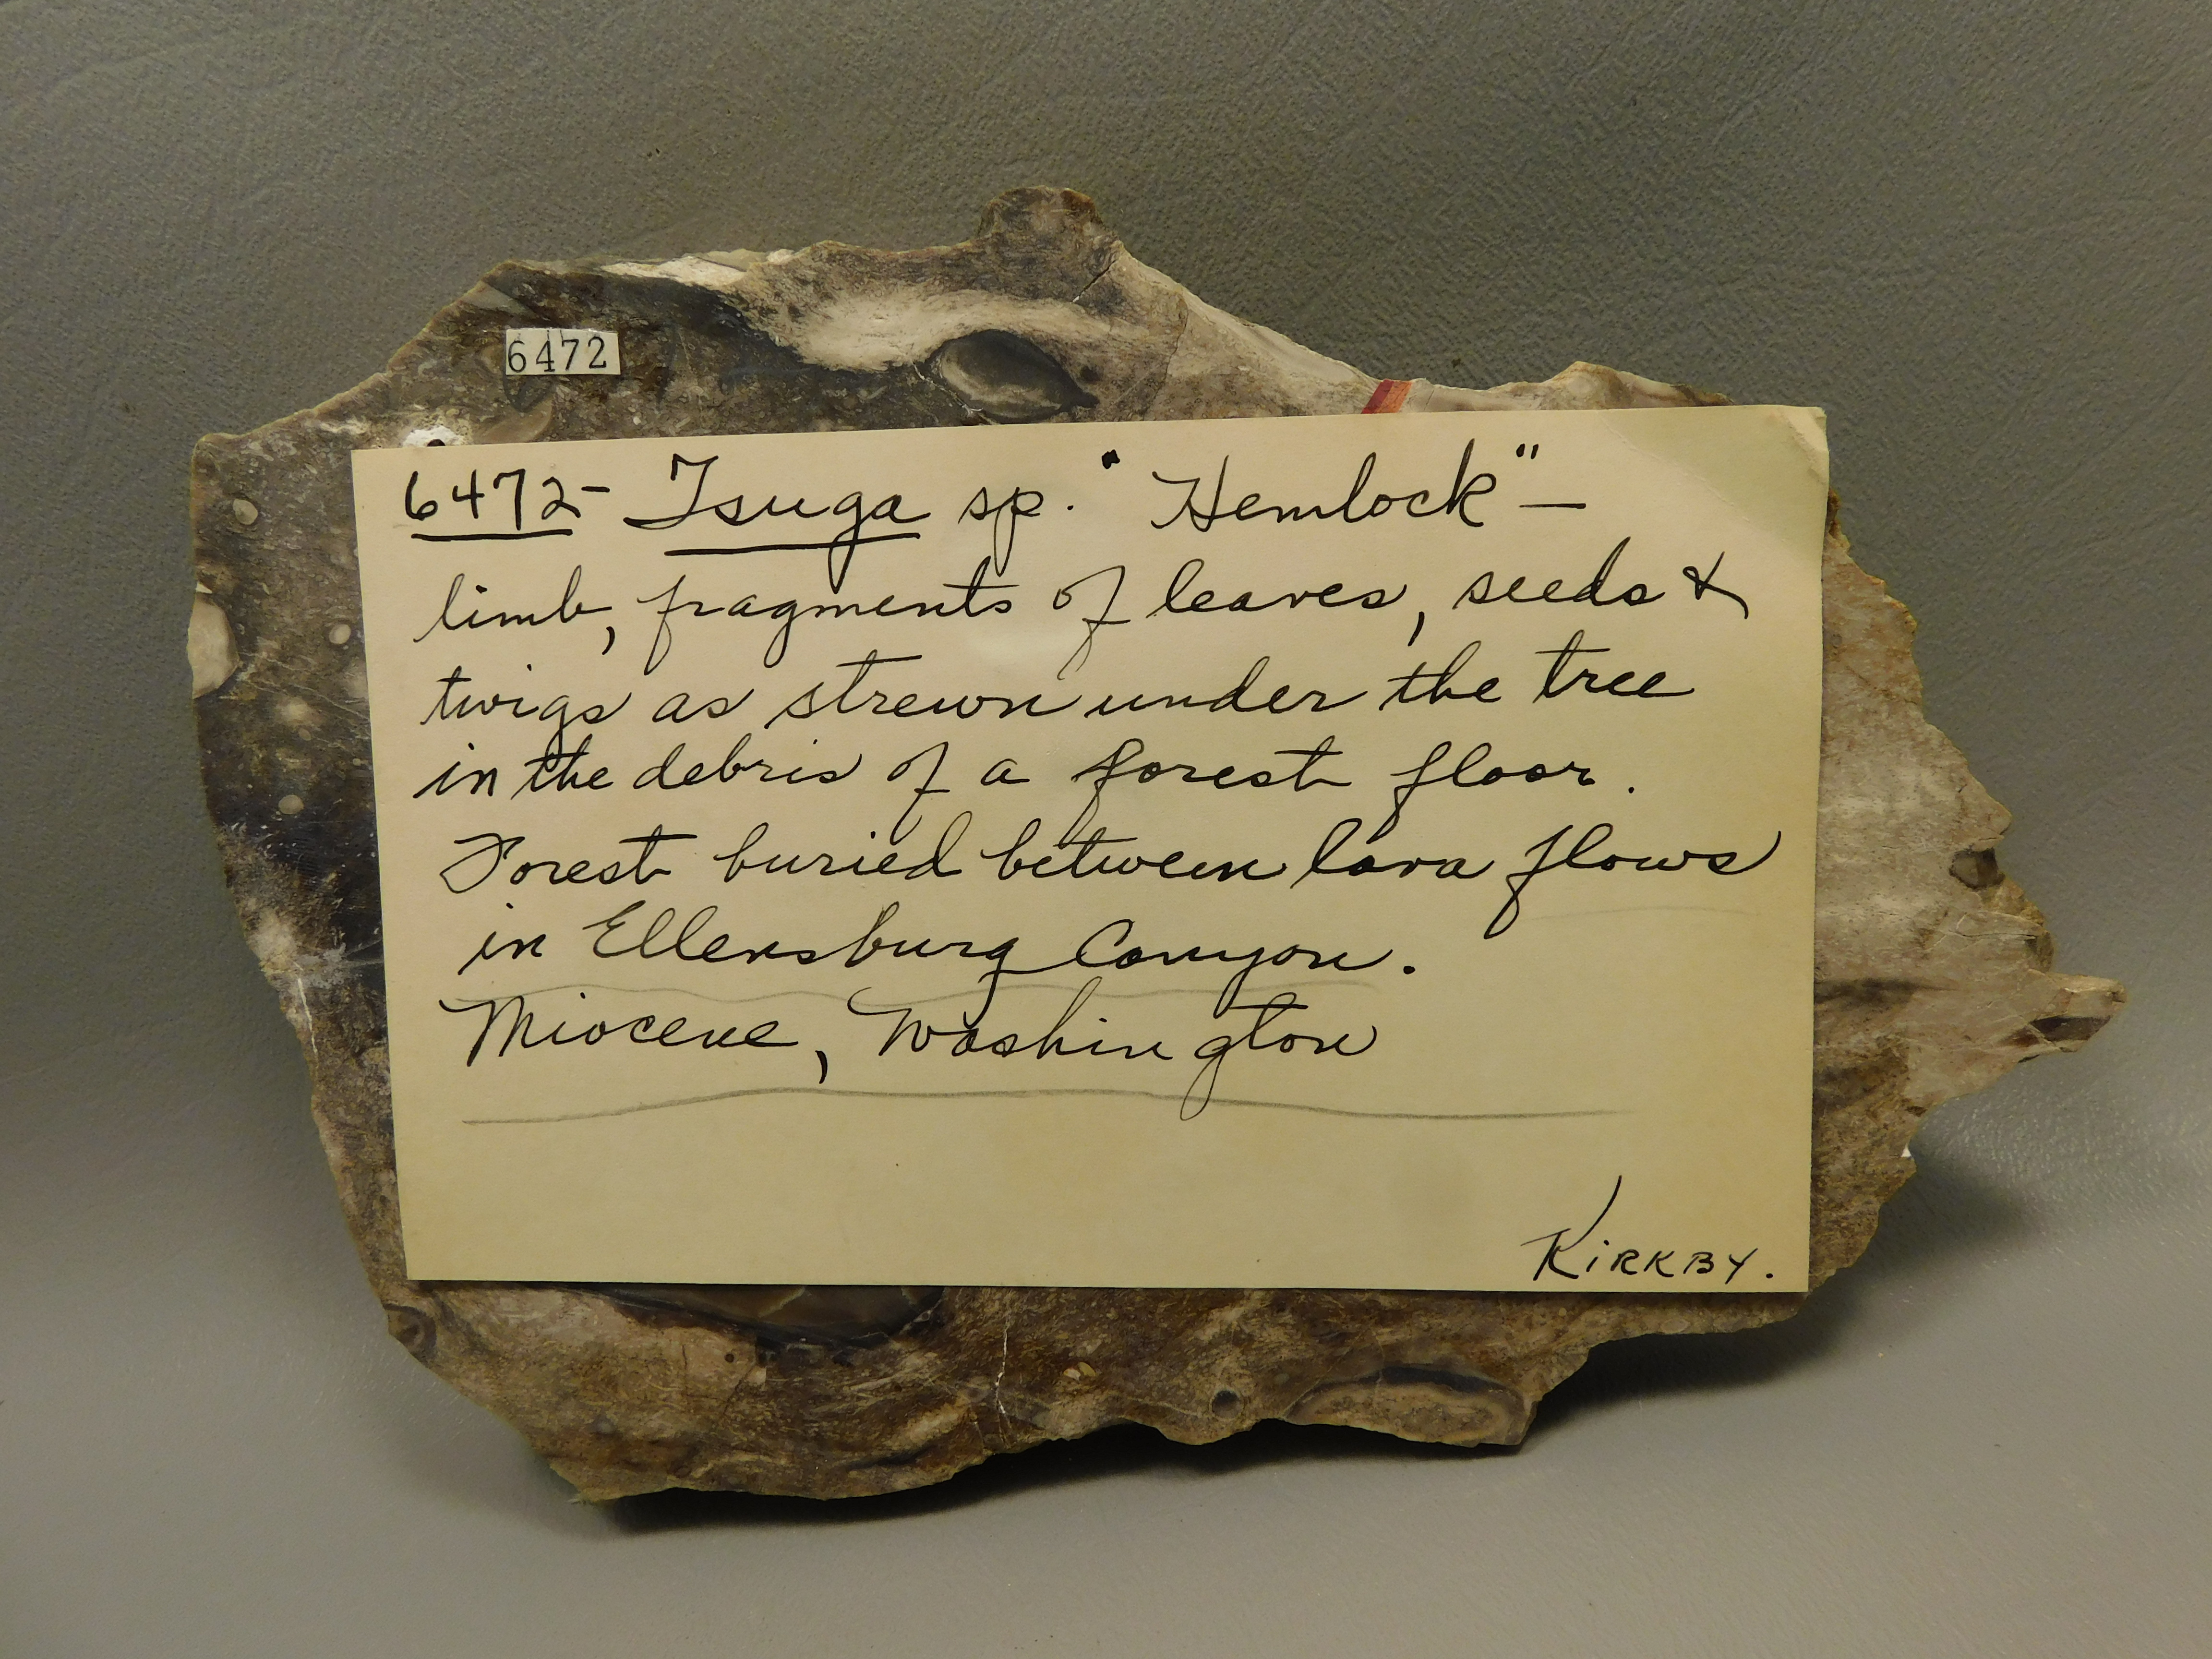 6472
6472- Tsuga sp. "Hemlock" —
limb, fragments of leaves, seeds &
twigs as strewn under the tree
in the debris of a forest floor.
Forest buried between lava flows
in Ellensburg Canyon.
Miocene, Washington
KiRKBY.